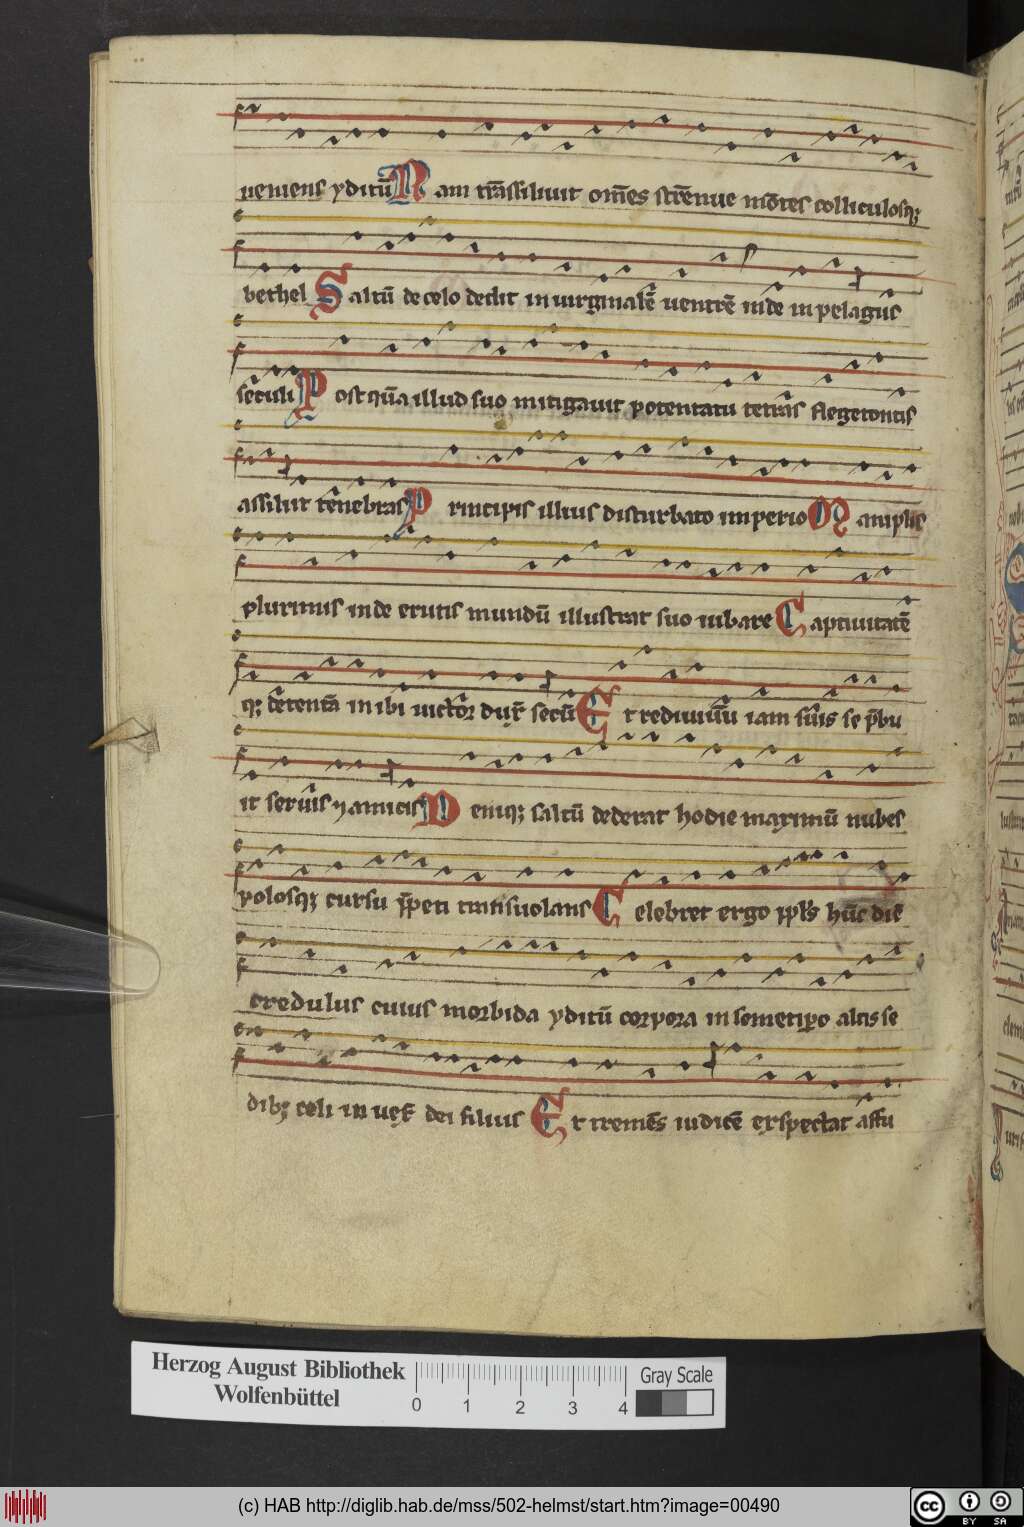 ueniens yditū Nam trāssiliuit om̄es strēnue mōtes colliculosq;
bethel Saltū de celo dedit in uirginalē uentrē inde in pelagus
seculi Post quā illud suo mitigauit potentatu tetras flegetontis
assiliit tenebras Principis illius disturbato imperio Maniplis
plurimis inde erutis mundū illustrat suo iubare Captiuitatē
q; detentā in ibi uictor dux̄ secū Et rediuiuū iam suis se p̄bu
it seruis ⁊ amicis Deniq; saltū dederat hodie maximū nubes
polosq; cursu p̄peti transuolans Celebret ergo ppl̄s hūc diē
credulus cuius morbida yditū corpora in semetipō altis se
dib; celi in uex̄ dei filius Et tremēs iudicē expectat affu
Herzog August Bibliothek
Wolfenbüttel
0 1 2 3 4
Gray Scale
(c) HAB http://diglib.hab.de/mss/502-helmst/start.htm?image=00490
cc BY SA